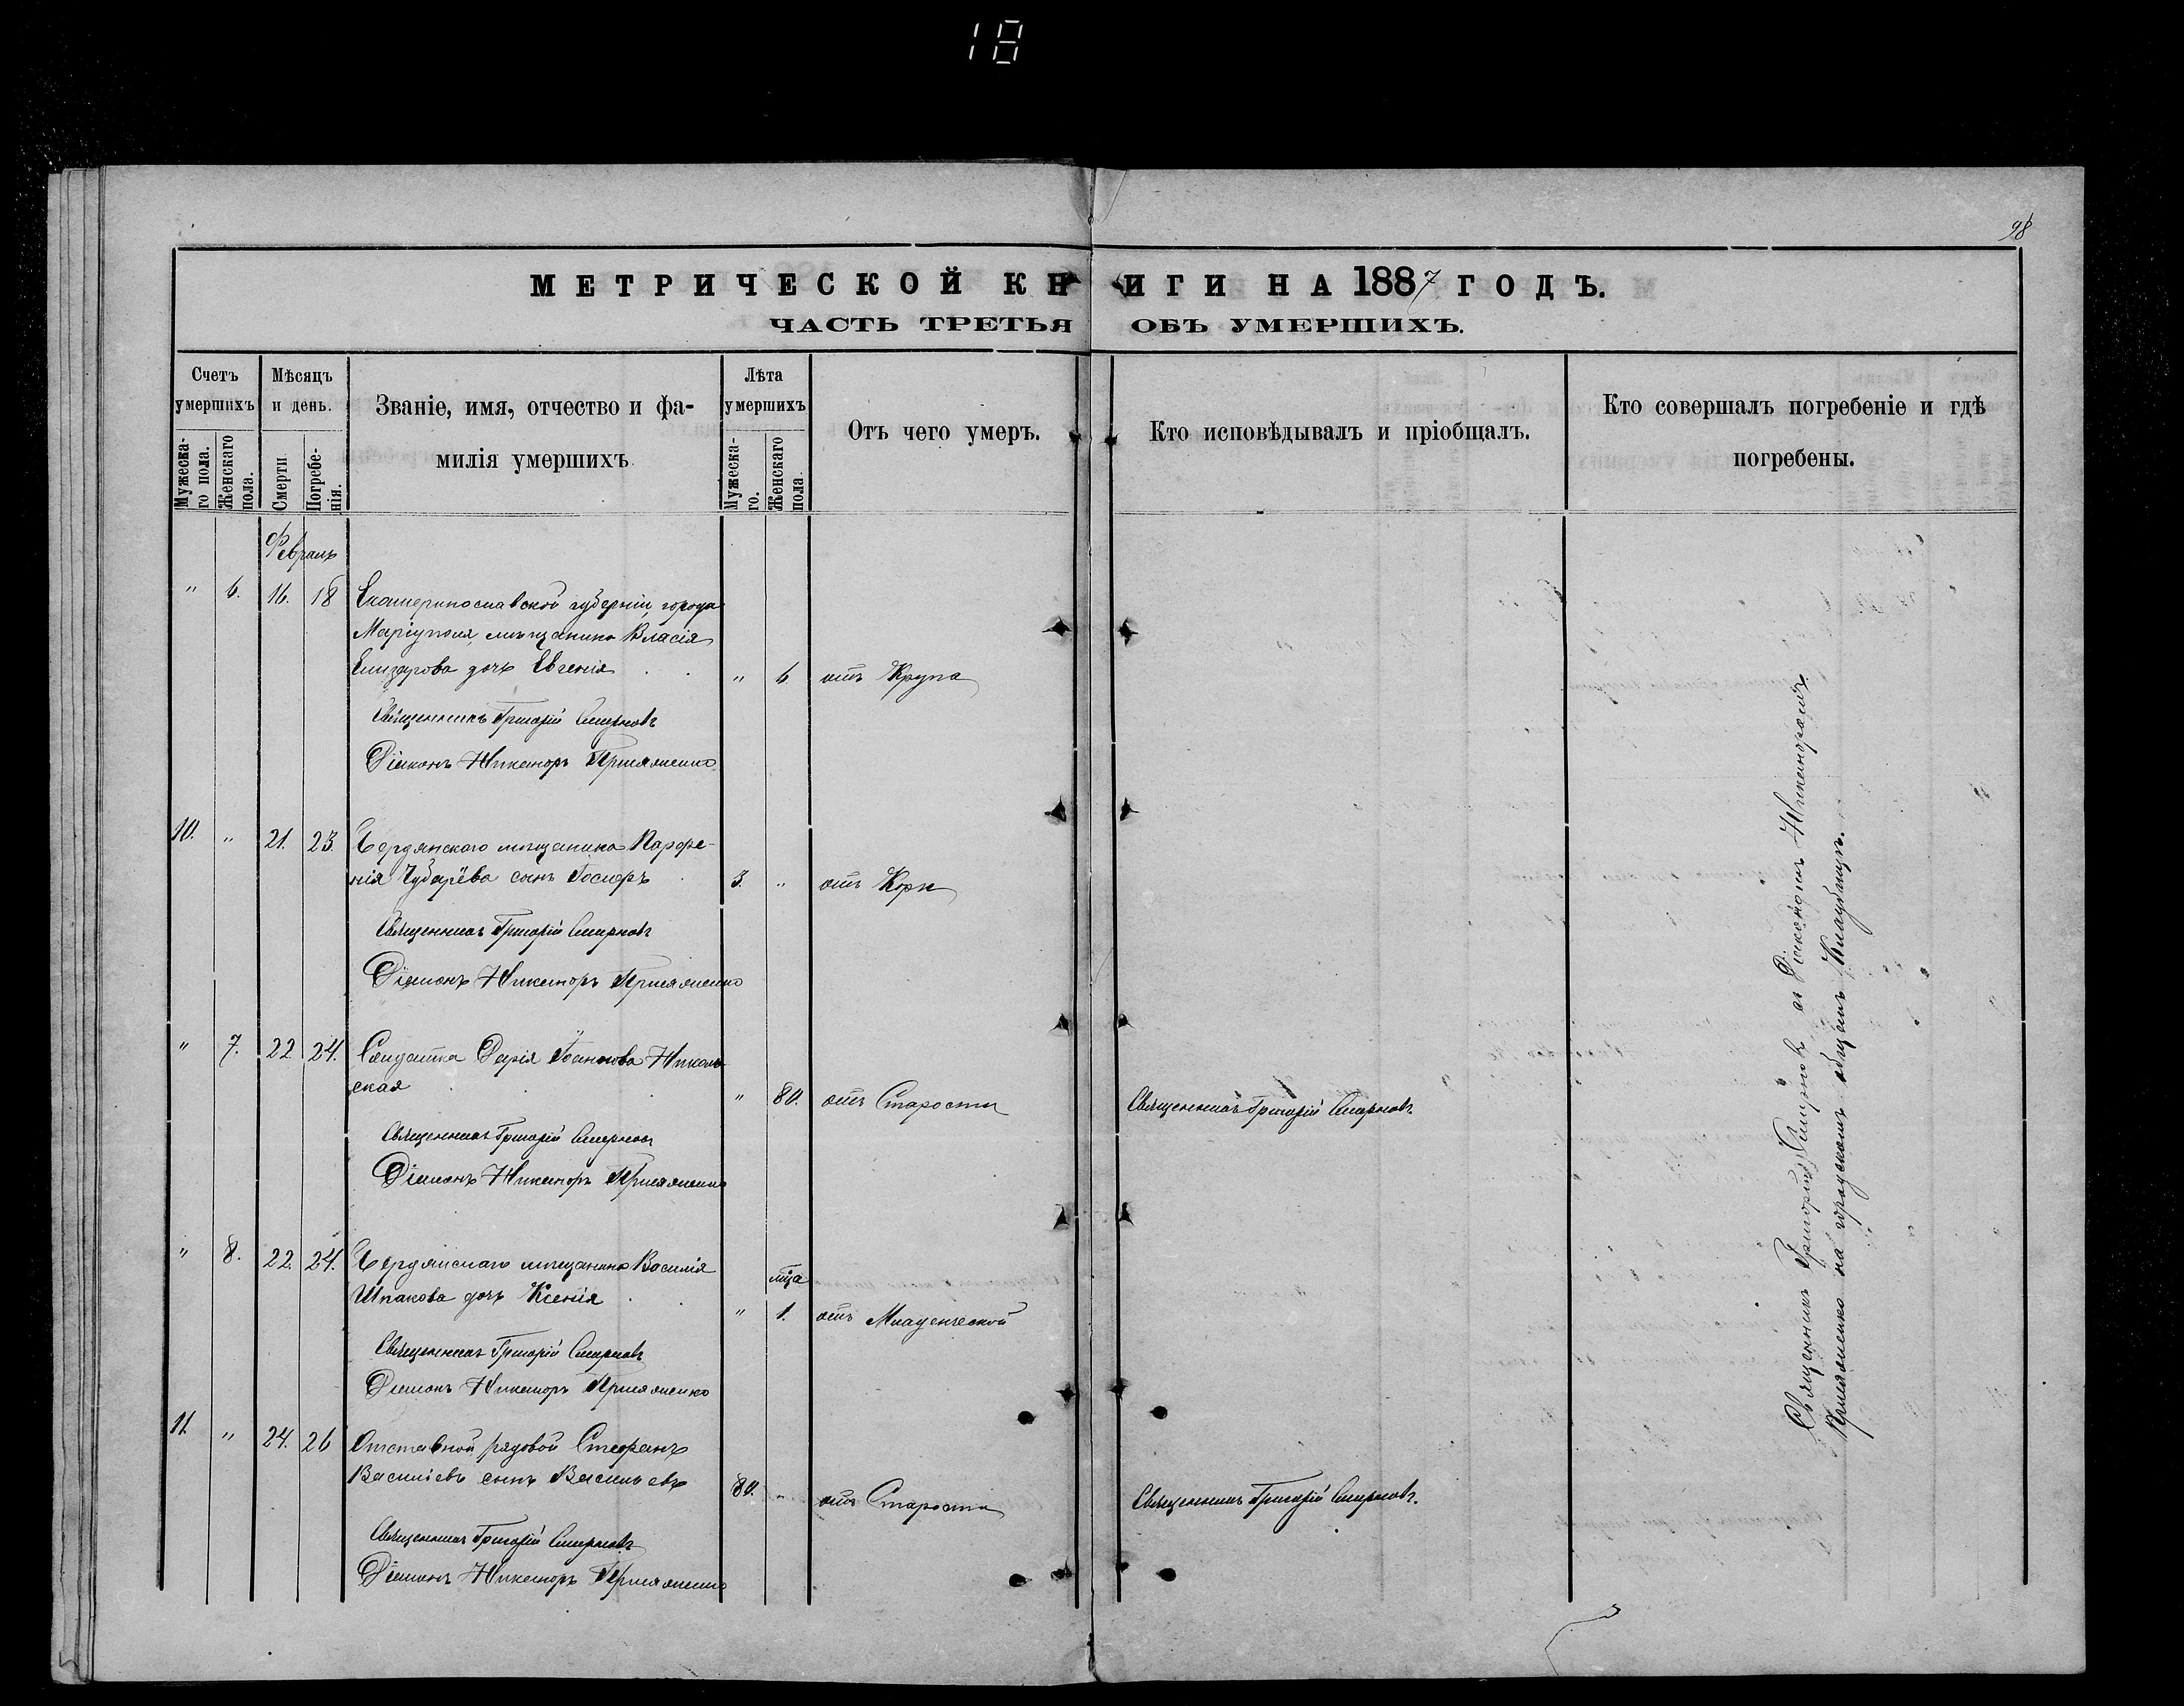 18
98
МЕТРИЧЕСКОЙ КНИГИ НА 1887 ГОДЪ.
ЧАСТЬ ТРЕТЬЯ ОБЪ УМЕРШИХЪ.
Счетъ умершихъ
Мѣсяцъ и день.
Званіе, имя, отчество и фа-
милія умершихъ
Лѣта умершихъ
Отъ чего умеръ.
Кто исповѣдывалъ и пріобщалъ.
Кто совершалъ погребеніе и гдѣ
погребены.
Мужеска-
го пола.
Женскаго
пола.
Смерти
Погребе-
нія.
Мужеска-
го.
Женскаго
пола
Февраль
" 6. 16. 18 Екатеринославской губерніи, города
Маріуполя, мѣщанина Власія
Елизарова дочь Евгенія " 6 отъ Крупа
Священникъ Григорій Смирновъ
Діаконъ Никаноръ
10. " 21. 23. Бердянскаго мѣщанина Парфе-
нія Чубарёва сынъ 3. " отъ Кори
Священникъ Григорій Смирновъ
Діаконъ Никаноръ
" 7. 22. 24. Солдатка Дарія Іоаннова Николь-
ская " 80. отъ Старости Священникъ Григорій Смирновъ
Священникъ Григорій Смирновъ
Діаконъ Никаноръ
" 8. 22. 24. Бердянскаго мѣщанина Василія
мѣца
Шпакова дочь Ксенія " 1. отъ Младенческой
Священникъ Григорій Смирновъ
Діаконъ Никаноръ
11. " 24. 26 Отставной рядовой Стефанъ
Василіевъ сынъ Васильевъ 80. " отъ Старости Священникъ Григорій Смирновъ.
Священникъ Григорій Смирновъ
Діаконъ Никаноръ
Священникъ Григорій Смирновъ съ Діакономъ Никаноромъ
на городскомъ общемъ Кладбищѣ.